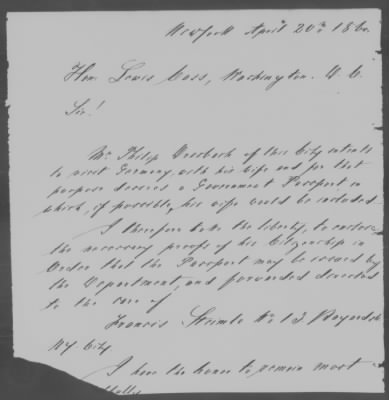 New York April 20th 1860.
Hon. Lewis Cass, Washington. D. C.
Sir!
Mr. Philip of this City intends
to visit Germany with his wife and for that
purpose desires a Government Passport in
which, if possible, his wife would be included.
I therefore take the liberty, to enclose
the necessary proofs of his Citizenship in
Order that the Passport may be issued by
the Department, and forwarded directed
to the care of
Francis No 1 J.
NY. City
I have the honor to remain most